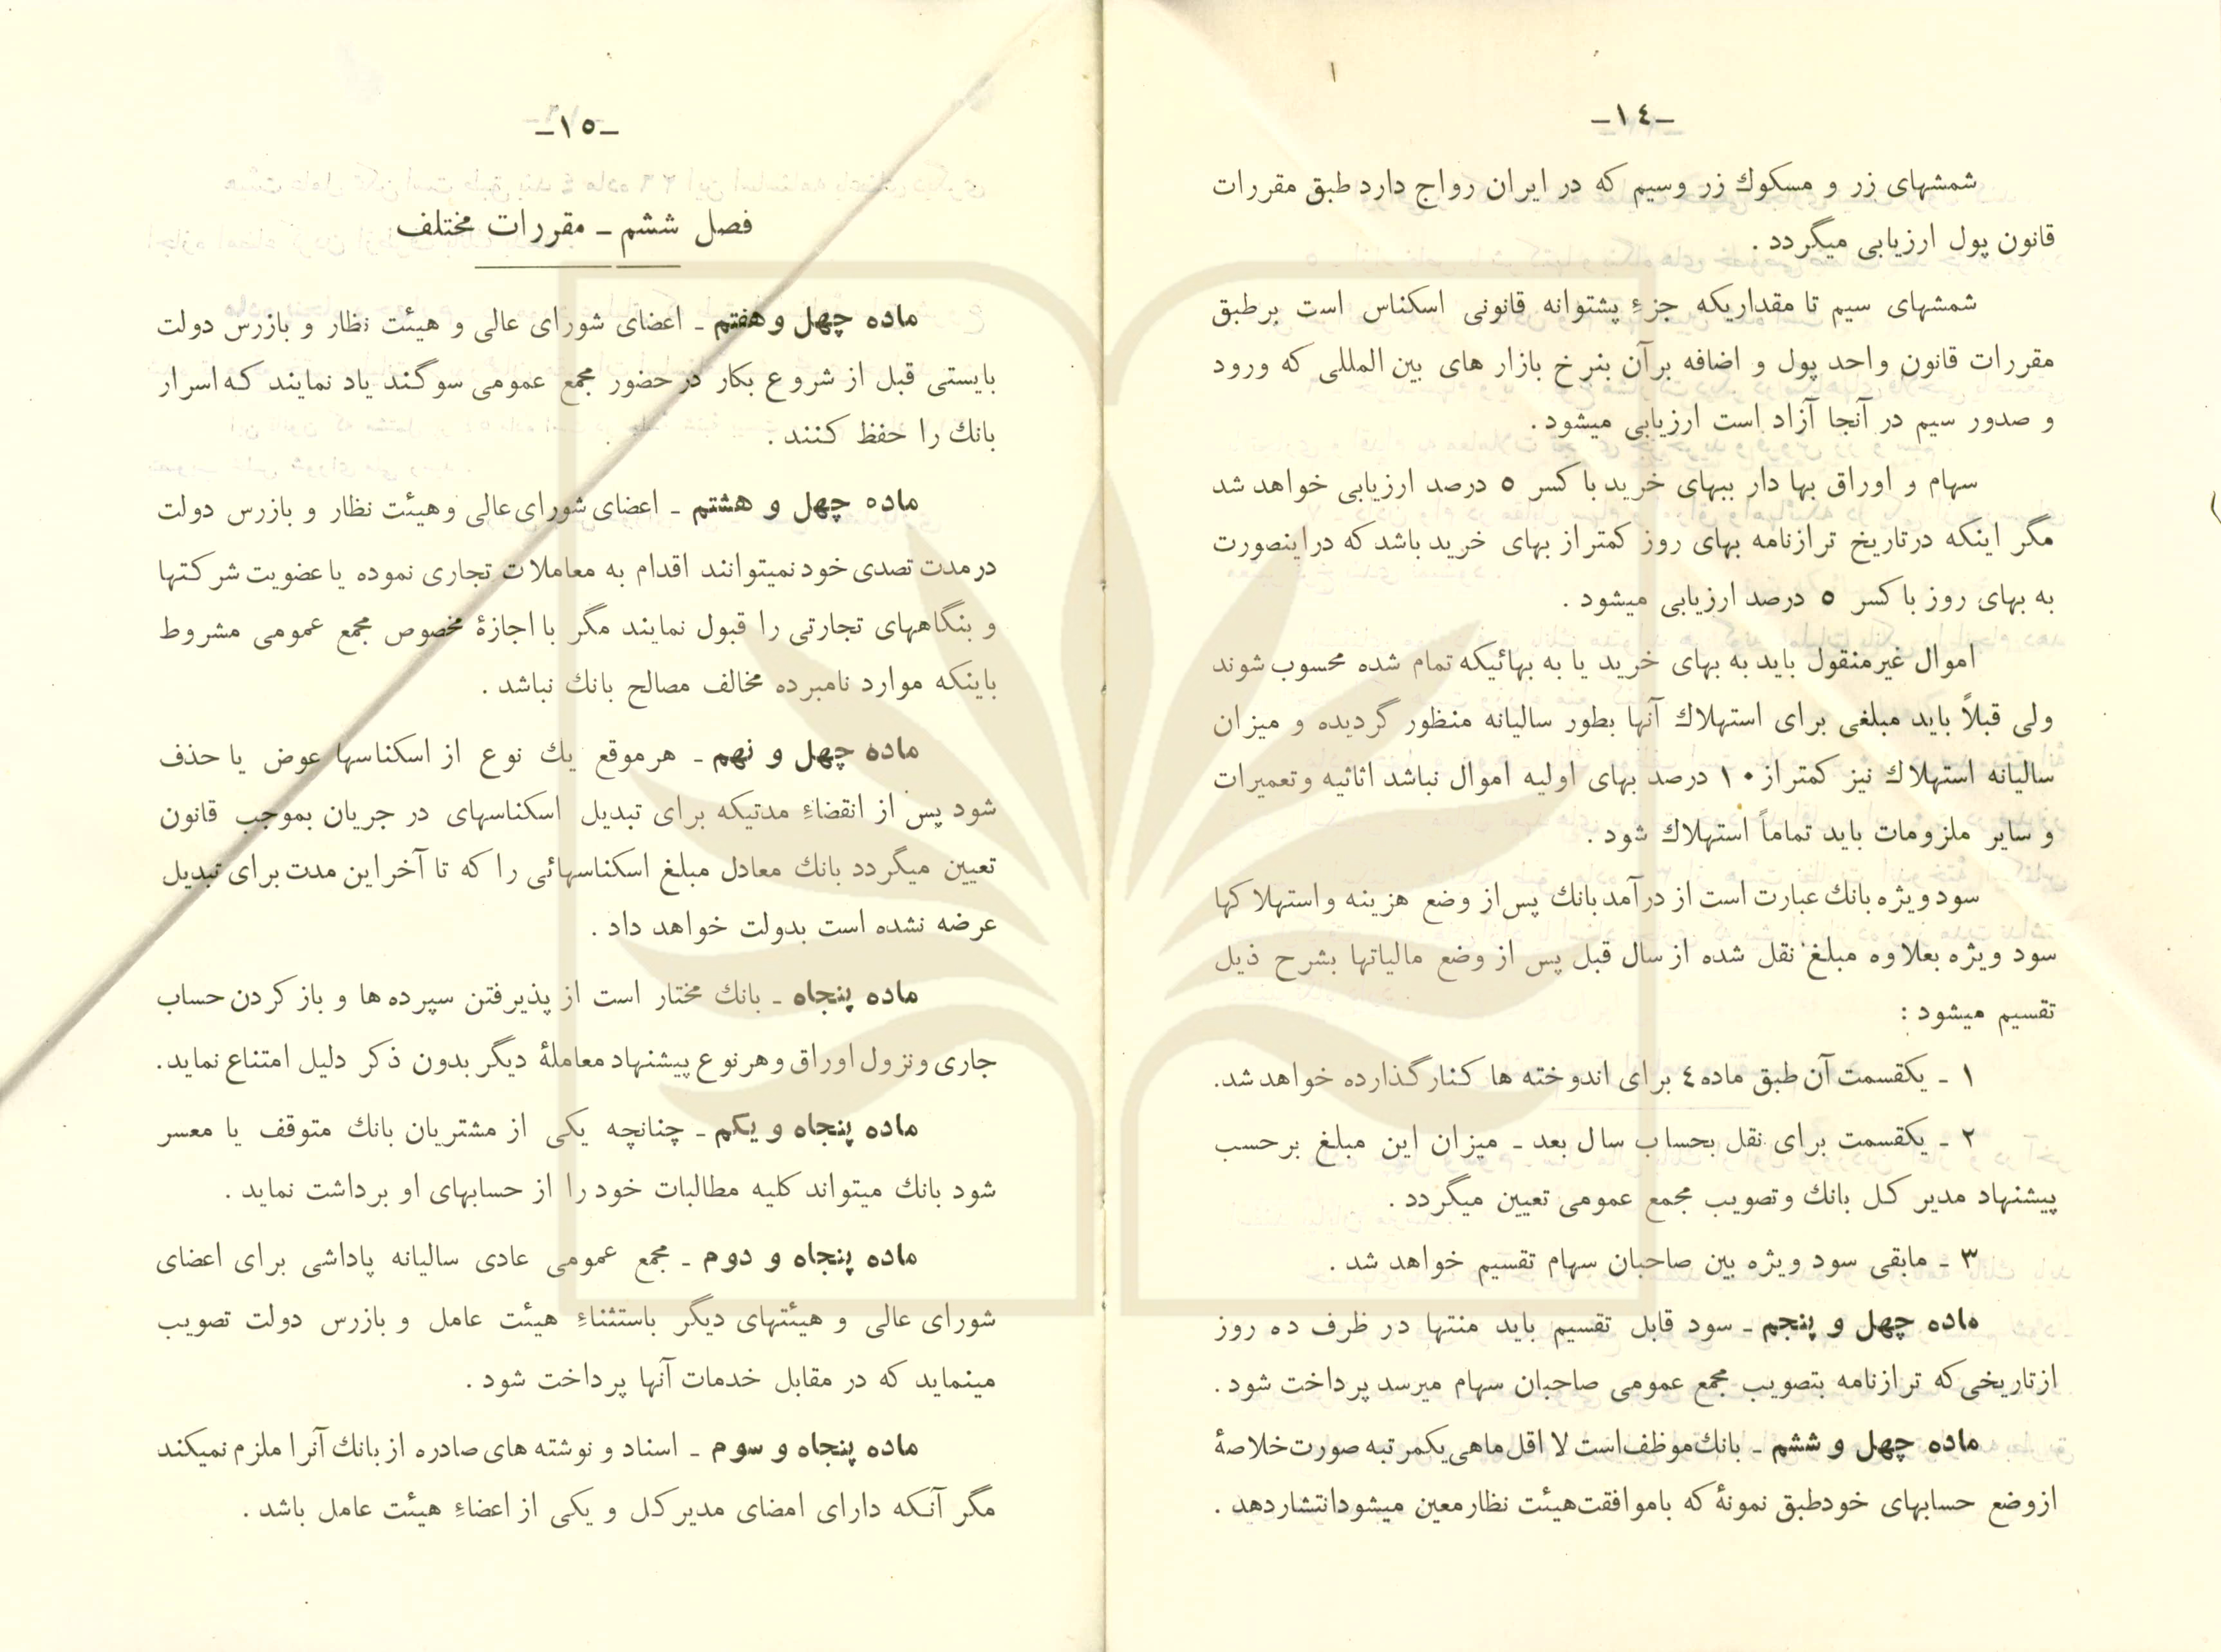 –١٤–
شمشهای زر و مسکوك زر وسیم که در ایران رواج دارد طبق مقررات
قانون پول ارزیابی میگردد .
شمشهای سیم تا مقداریکه جزءِ پشتوانه قانونی اسکناس است برطبق
مقررات قانون واحد پول و اضافه برآن بنرخ بازار های بین المللی که ورود
و صدور سیم در آنجا آزاد است ارزیابی میشود .
سهام و اوراق بها دار ببهای خرید با کسر ٥ درصد ارزیابی خواهد شد
مگر اینکه درتاریخ ترازنامه بهای روز کمتر از بهای خرید باشد که دراینصورت
به بهای روز با کسر ٥ درصد ارزیابی میشود .
اموال غیرمنقول باید به بهای خرید یا به بهائیکه تمام شده محسوب شوند
ولی قبلاً باید مبلغی برای استهلاك آنها بطور سالیانه منظور گردیده و میزان
سالیانه استهلاك نیز کمتر از ١٠ درصد بهای اولیه اموال نباشد اثاثیه و تعمیرات
و سایر ملزومات باید تماماً استهلاك شود .
سود ویژه بانك عبارت است از درآمد بانك پس از وضع هزینه و استهلاکها
سود ویژه بعلاوه مبلغ نقل شده از سال قبل پس از وضع مالیاتها بشرح ذیل
تقسیم میشود :
١ ـ یکقسمت آن طبق ماده ٤ برای اندوخته ها کنار گذارده خواهد شد.
٢ ـ یکقسمت برای نقل بحساب سال بعد ـ میزان این مبلغ برحسب
پیشنهاد مدیر کل بانك و تصویب مجمع عمومی تعیین میگردد .
٣ ـ مابقی سود ویژه بین صاحبان سهام تقسیم خواهد شد .
ماده چهل و پنجم ـ سود قابل تقسیم باید منتها در ظرف ده روز
ازتاریخی که ترازنامه بتصویب مجمع عمومی صاحبان سهام میرسد پرداخت شود .
ماده چهل و ششم ـ بانك موظف است لا اقل ماهی یکمرتبه صورت خلاصهٔ
ازوضع حسابهای خود طبق نمونهٔ که باموافقت هیئت نظار معین میشود انتشار دهد .
–١٥–
فصل ششم ـ مقررات مختلف
ماده چهل و هفتم ـ اعضای شورای عالی و هیئت نظار و بازرس دولت
بایستی قبل از شروع بکار در حضور مجمع عمومی سوگند یاد نمایند که اسرار
بانك را حفظ کنند .
ماده چهل و هشتم ـ اعضای شورای عالی و هیئت نظار و بازرس دولت
درمدت تصدی خود نمیتوانند اقدام به معاملات تجاری نموده یا عضویت شرکتها
و بنگاههای تجارتی را قبول نمایند مگر با اجازهٔ مخصوص مجمع عمومی مشروط
باینکه موارد نامبرده مخالف مصالح بانك نباشد .
ماده چهل و نهم ـ هرموقع یك نوع از اسکناسها عوض یا حذف
شود پس از انقضاءِ مدتیکه برای تبدیل اسکناسهای در جریان بموجب قانون
تعیین میگردد بانك معادل مبلغ اسکناسهائی را که تا آخر این مدت برای تبدیل
عرضه نشده است بدولت خواهد داد .
ماده پنجاه ـ بانك مختار است از پذیرفتن سپرده ها و باز کردن حساب
جاری و نزول اوراق و هر نوع پیشنهاد معاملهٔ دیگر بدون ذکر دلیل امتناع نماید.
ماده پنجاه و یکم ـ چنانچه یکی از مشتریان بانك متوقف یا معسر
شود بانك میتواند کلیه مطالبات خود را از حسابهای او برداشت نماید .
ماده پنجاه و دوم ـ مجمع عمومی عادی سالیانه پاداشی برای اعضای
شورای عالی و هیئتهای دیگر باستثناءِ هیئت عامل و بازرس دولت تصویب
مینماید که در مقابل خدمات آنها پرداخت شود .
ماده پنجاه و سوم ـ اسناد و نوشته های صادره از بانك آنرا ملزم نمیکند
مگر آنکه دارای امضای مدیر کل و یکی از اعضاءِ هیئت عامل باشد .